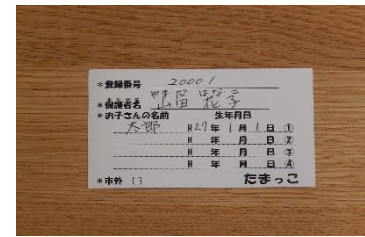 *登録番号 20001
やまだ はなこ
*保護者名 山田 花子
*お子さんの名前 生年月日
太郎 H27年 1月 1日 ①
H 年 月 日 ②
H 年 月 日 ③
H 年 月 日 ④
*市外 [ ] たまっこ